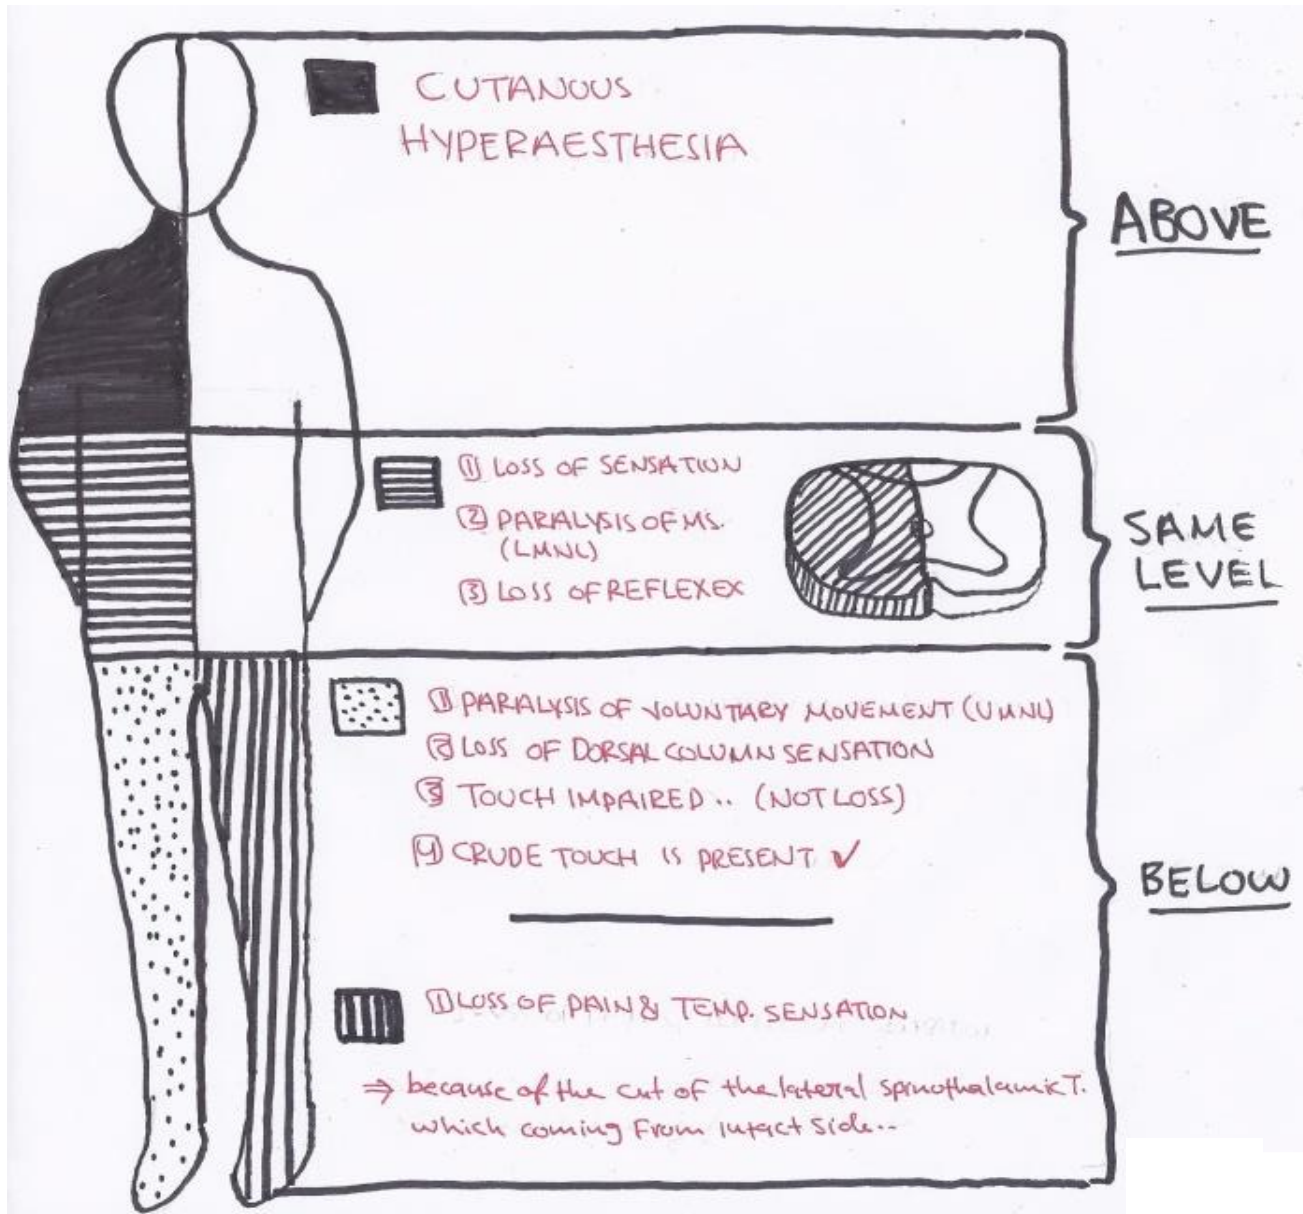 CUTANOUS
HYPERAESTHESIA
ABOVE
① LOSS OF SENSATION
② PARALYSIS OF MS.
(LMNL)
③ LOSS OF REFLEXEX
SAME
LEVEL
① PARALYSIS OF VOLUNTARY MOVEMENT (UMNL)
② LOSS OF DORSAL COLUMN SENSATION
③ TOUCH IMPAIRED.. (NOT LOSS)
④ CRUDE TOUCH IS PRESENT ✓
BELOW
① LOSS OF PAIN & TEMP. SENSATION
⇒ because of the cut of the lateral spinothalamic T.
which coming From intact side..